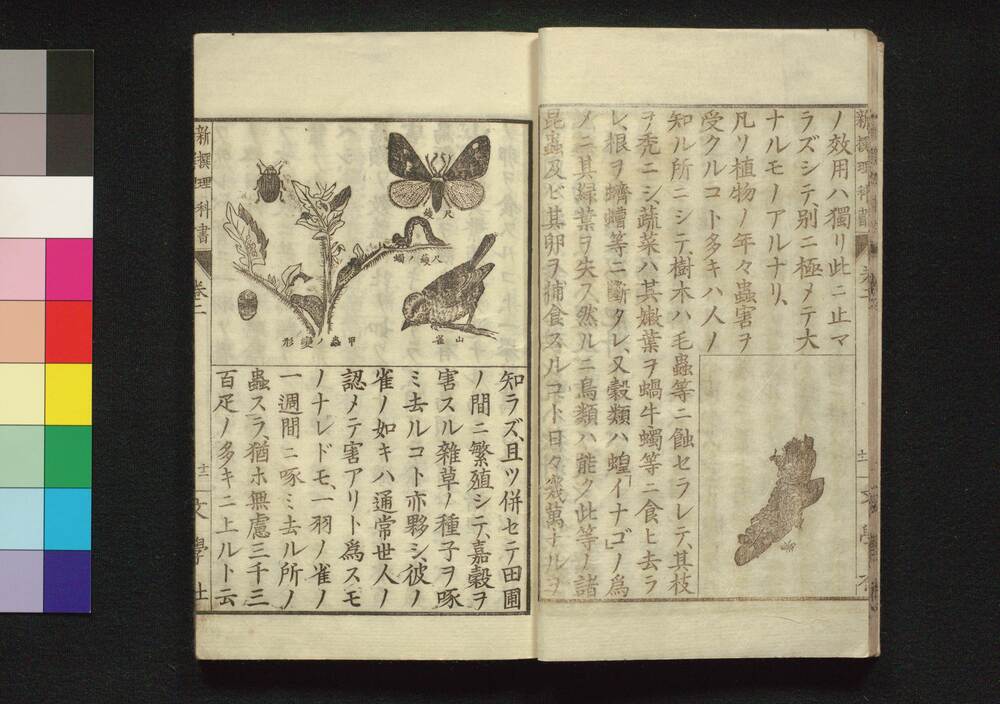 新撰理科書
卷二
十一
文學社
ノ效用ハ獨リ此ニ止マ
ラズシテ、別ニ極メテ大
ナルモノアルナリ、
凡ソ植物ノ年々蟲害ヲ
受クルコト多キハ人ノ
知ル所ニシテ、樹木ハ毛蟲等ニ蝕セラレテ、其枝
ヲ禿ニシ、蔬菜ハ其嫩葉ヲ蝸牛蠋等ニ食ヒ去ラ
レ、根ヲ蠐螬等ニ斷タレ、又穀類ハ蝗「イナゴ」ノ爲
メニ其緑葉ヲ失ス然ルニ鳥類ハ能ク此等ノ諸
昆蟲及ビ其卵ヲ捕食スルコト日々幾萬ナルヲ
尺蠖
尺蠖ノ蠋
山雀
甲蟲ノ變形
知ラズ、且ツ併セテ田圃
ノ間ニ繁殖シテ、嘉穀ヲ
害スル雜草ノ種子ヲ啄
ミ去ルコト亦夥シ、彼ノ
雀ノ如キハ通常世人ノ
認メテ害アリト爲スモ
ノナレドモ、一羽ノ雀ノ
一週間ニ啄ミ去ル所ノ
蟲スラ、猶ホ無慮三千三
百疋ノ多キニ上ルト云
新撰理科書
卷二
十二
文學社